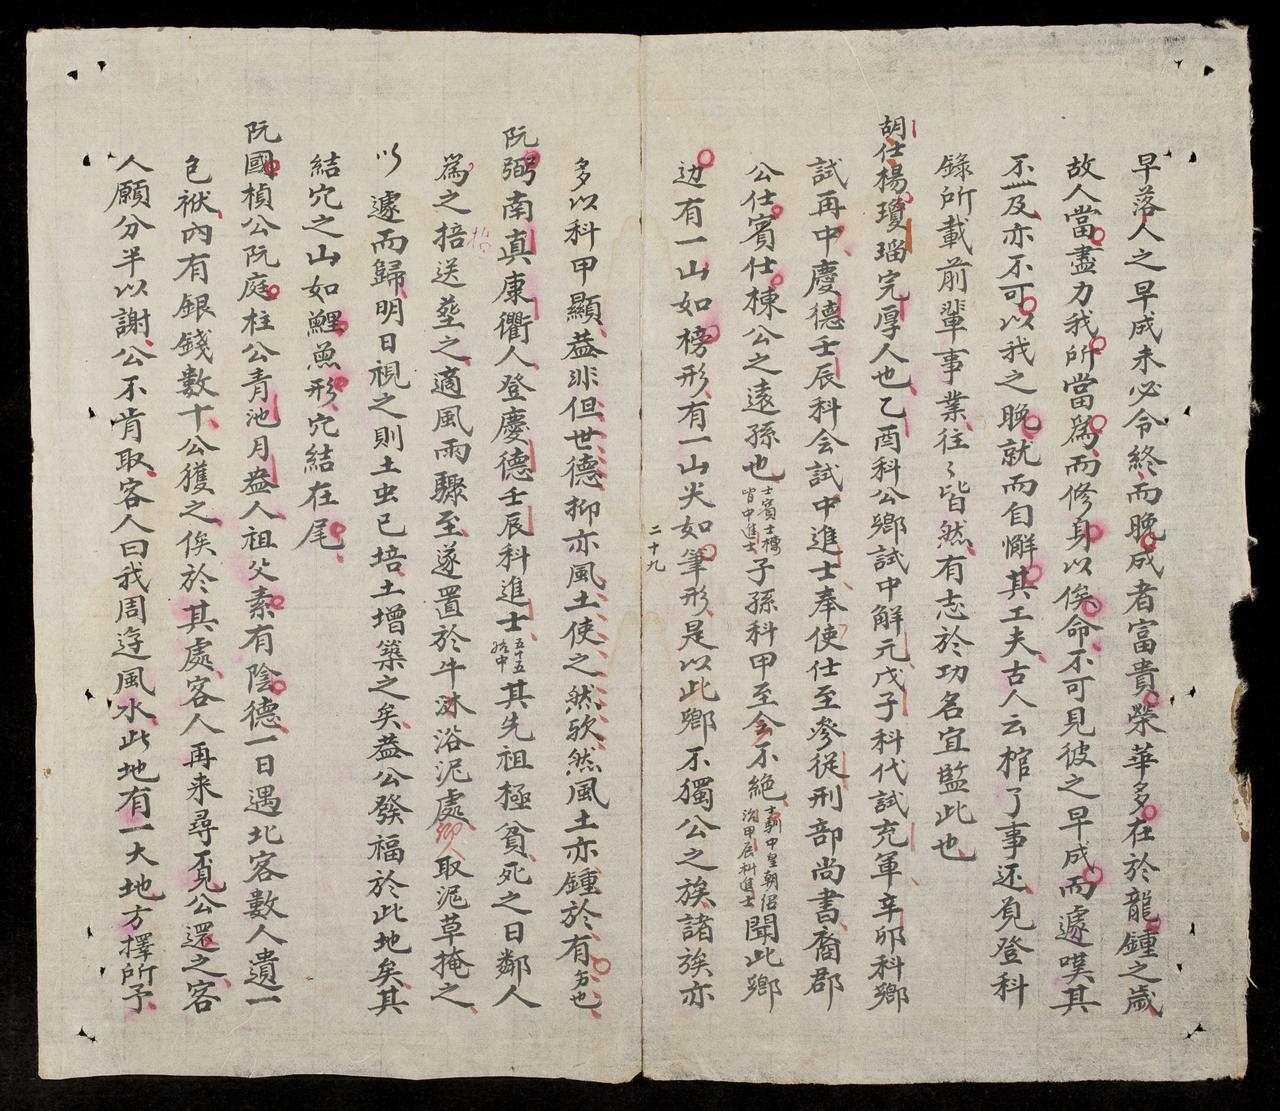 早落人之早成未必令終而晚成者富貴榮華多在於龍鍾之歲
故人當盡力我所當為而修身以俟命不可見彼之早成而遽嘆其
不及亦不可以我之晚就而自懈其工夫古人云棺了事还覓登科
錄所載前輩事業往〻皆然有志於功名宜監此也
胡仕楊瓊瑙完厚人也乙酉科公鄉試中解元戊子科代試充軍辛卯科鄉
試再中慶德壬辰科会試中進士奉使仕至參從刑部尚書裔郡
公仕賓仕棟公之遠孫也士賓士棟皆中進士子孫科甲至今不絕士馴中皇朝紹治甲辰科進士聞此鄉
边有一山如榜形有一山尖如筆形是以此鄉不獨公之族諸族亦
二十九
多以科甲顯益非但世德抑亦風土使之然欤然風土亦鍾於有方也
阮弼南真康衢人登慶德壬辰科進士五十五始中其先祖極貧死之日鄰人
為之掊送塟之適風雨驟至遂置於牛沐浴泥處鄉人取泥草掩之
以遽而歸明日視之則土虫已培土增築之矣益公發福於此地矣其
結穴之山如鯉魚形穴結在尾
阮國楨公阮庭柱公青池月盎人祖父素有陰德一日遇北客數人遺一
包袱內有銀錢數十公獲之俟於其處客人再来尋覓公還之客
人願分半以謝公不肯取客人曰我周遊風水此地有一大地方擇所予